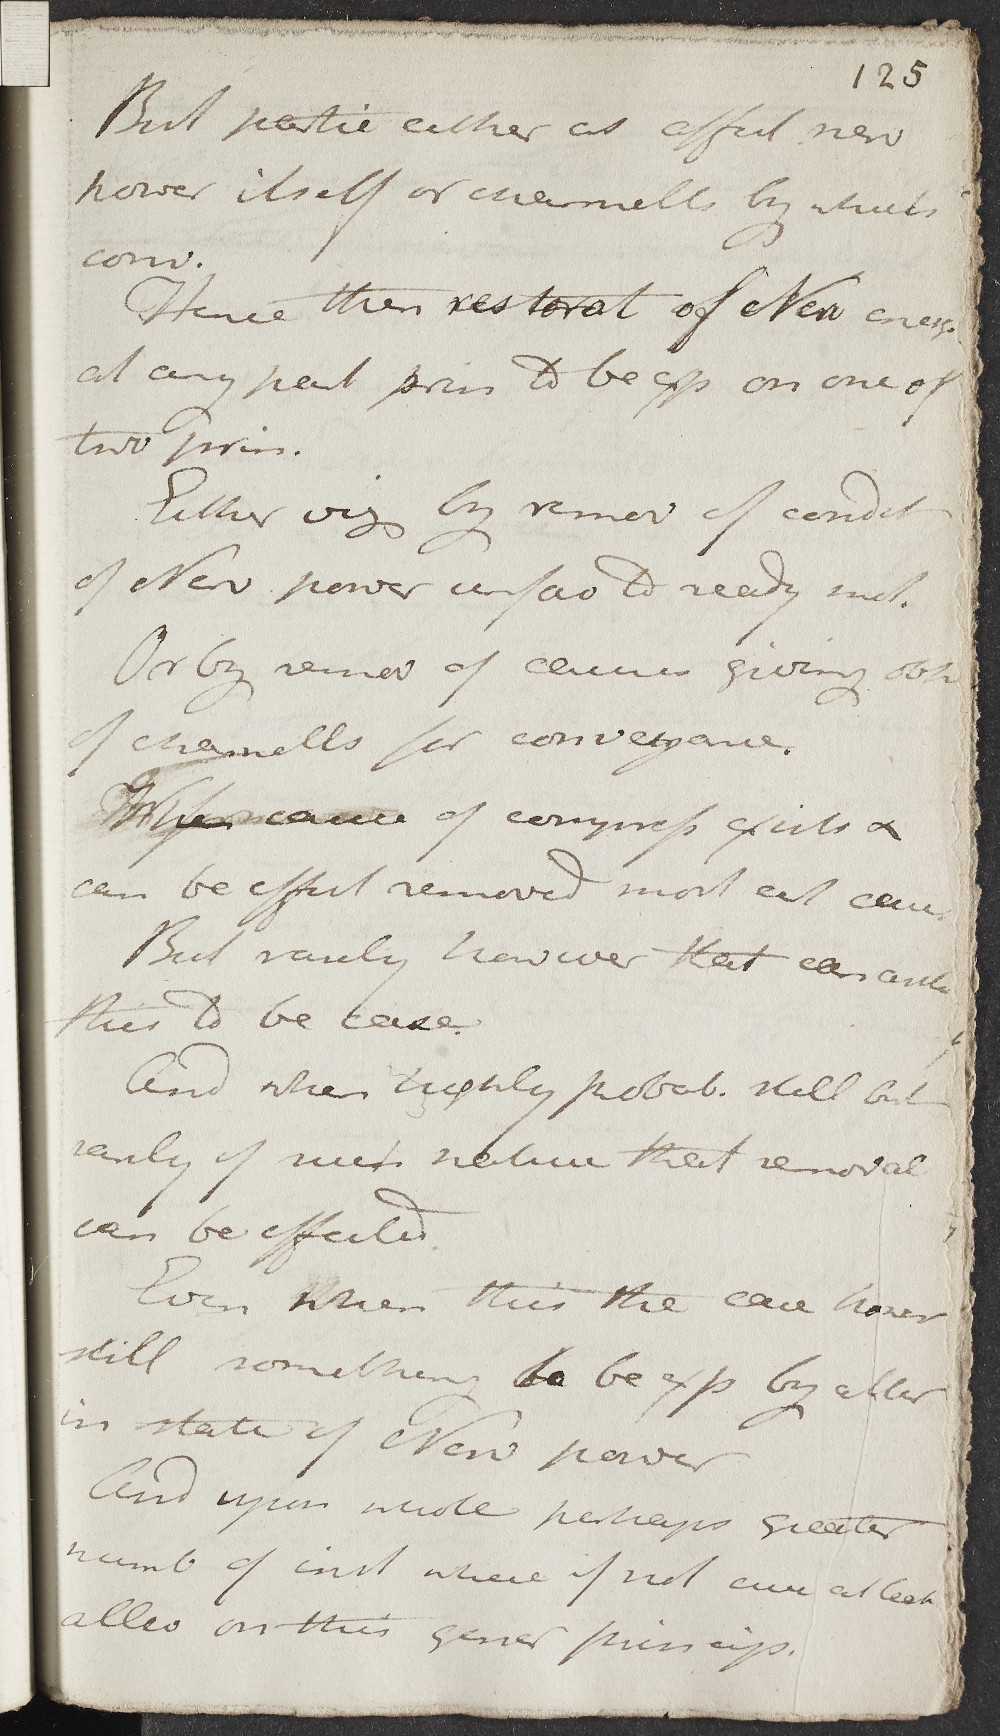 125
But partic either as affect nerv
power itself or channells by which
conv.
Hence then restorat of Nerv energ.
at any part prin to be exp on one of
two prin.
Either viz by remov of condit
of Nerv power unfav to ready mot.
Or by remov of causes giving obst
of channells for conveyance.
When cause of compress exists &
can be effect removed most cert cure.
But rarely however that can asc
this to be case.
And when highly probab. still but
rarely of such nature that removal
can be effected.
Even when this the case howev
still something to be exp by alter
in state of Nerv power
And upon whole perhaps greater
numb of inst where if not cure at least
allev on this gener princip.